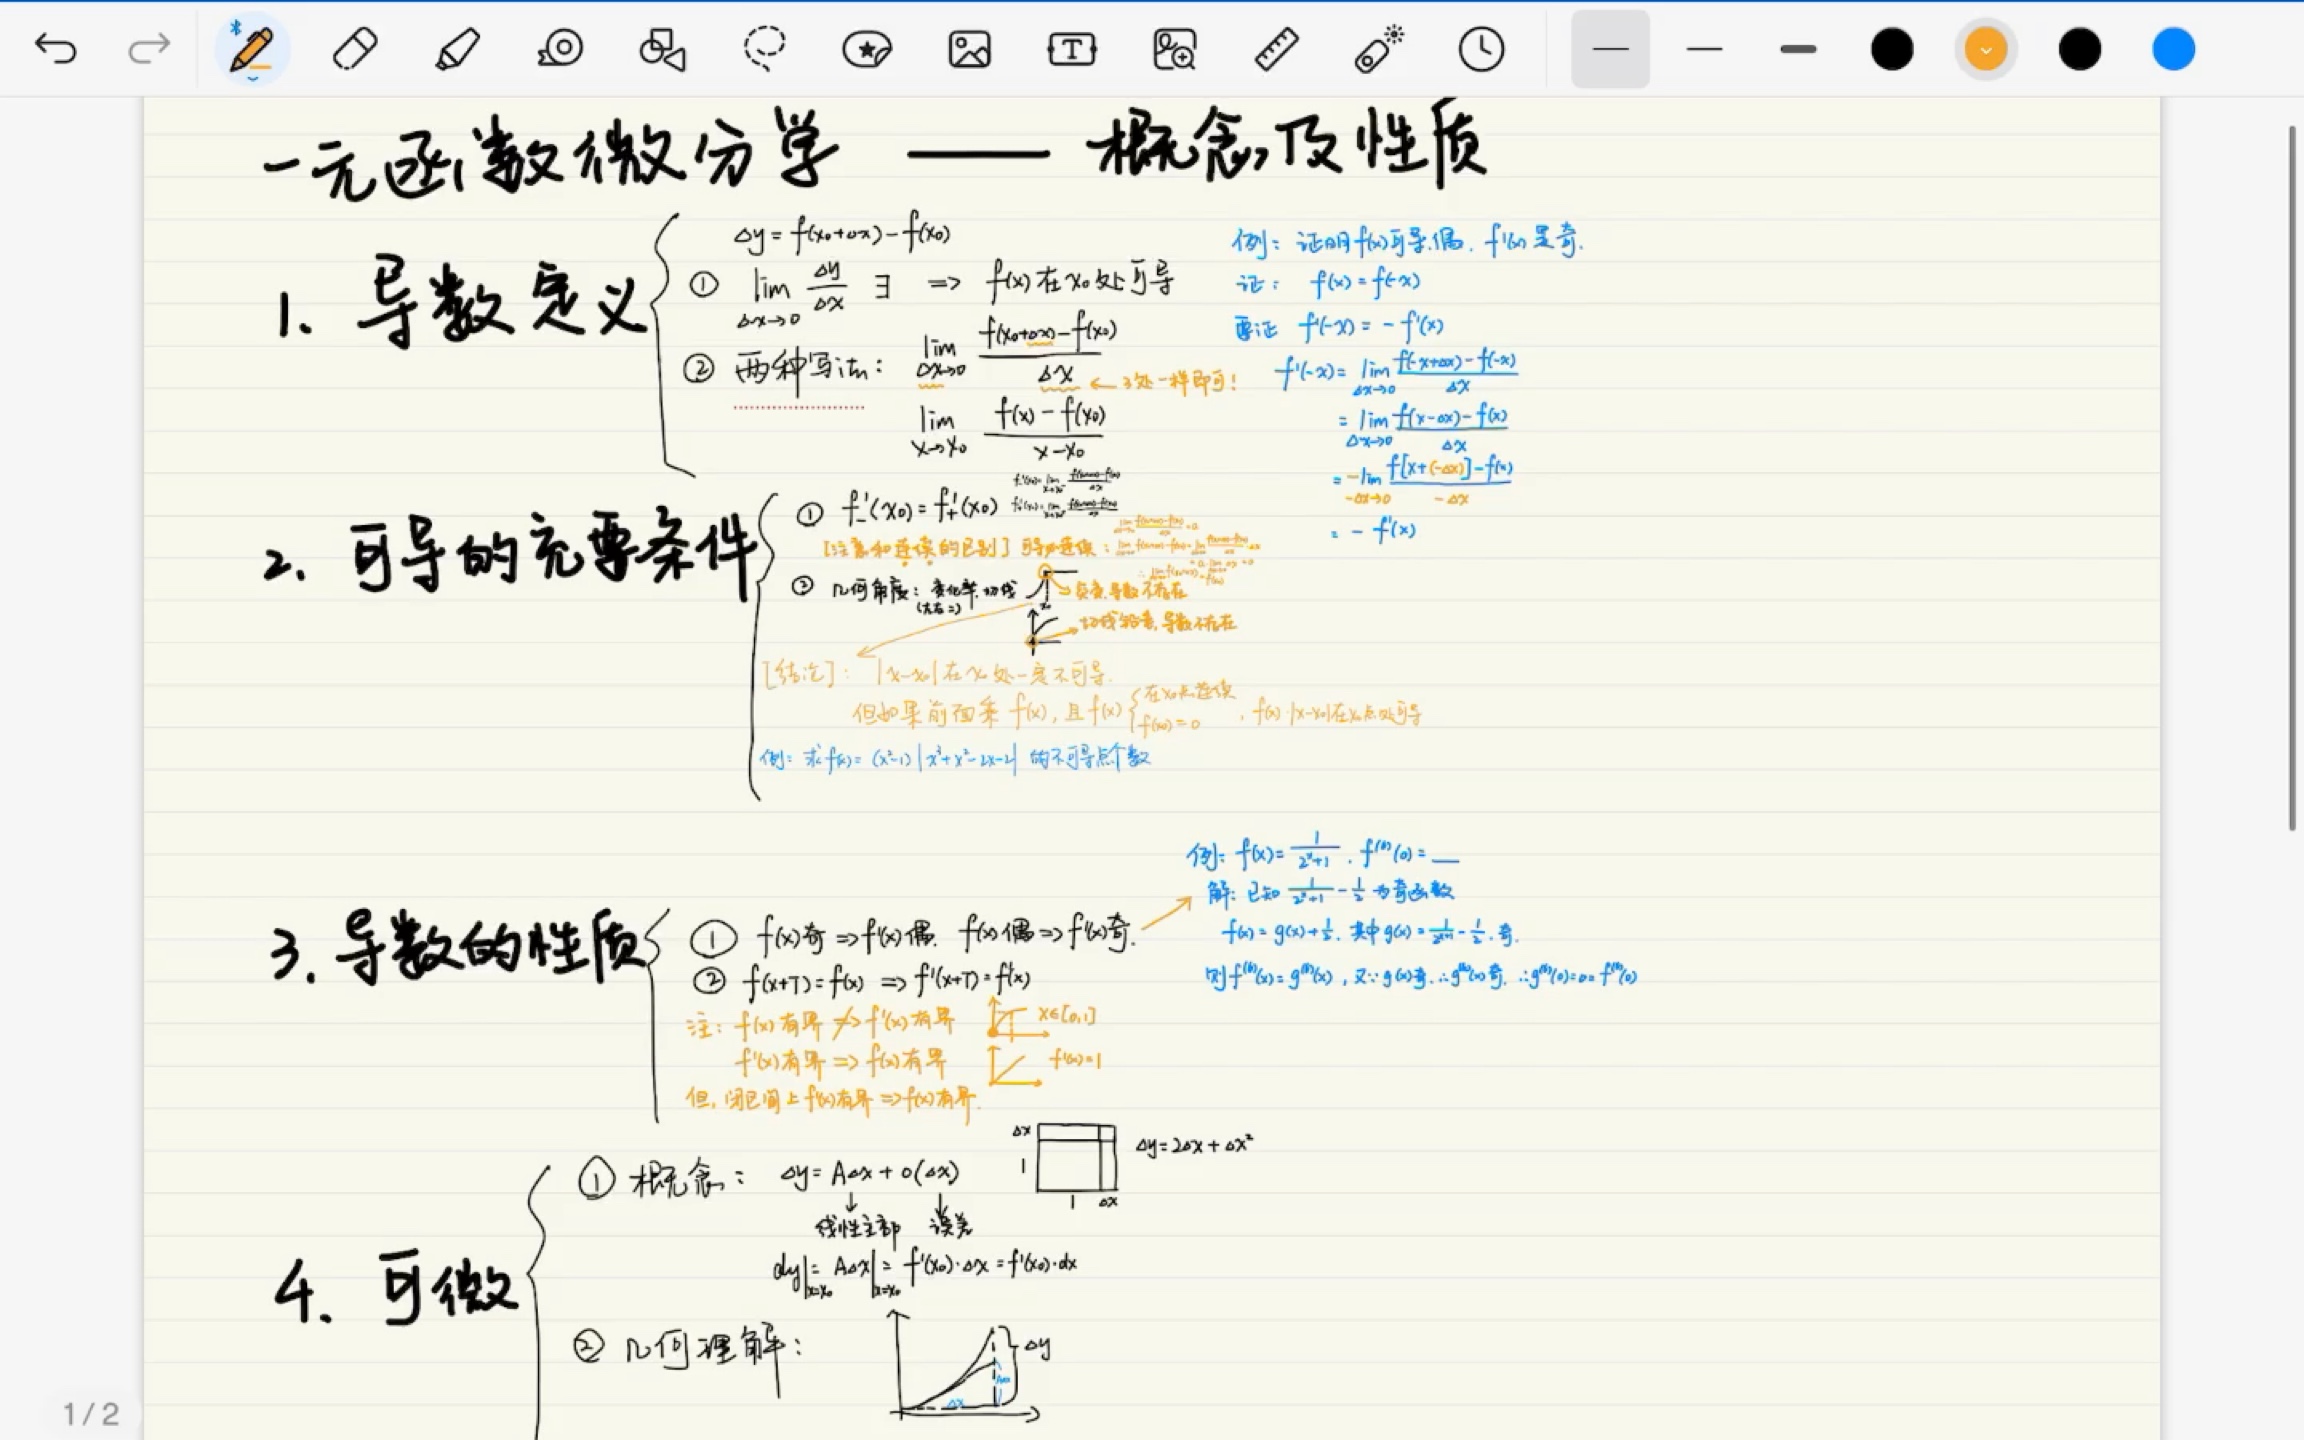 一元函数微分学 —— 概念及性质
1. 导数定义
Δy = f(x₀+Δx) − f(x₀)
① lim Δx→0 Δy/Δx ∃ ⇒ f(x)在x₀处可导
② 两种写法： lim Δx→0 (f(x₀+Δx) − f(x₀))/Δx ← 3处一样即可！
lim x→x₀ (f(x) − f(x₀))/(x − x₀)
例：证明f(x)可导.偶. f'(x)是奇.
证： f(x) = f(-x)
要证 f'(-x) = − f'(x)
f'(-x) = lim Δx→0 (f(-x+Δx) − f(-x))/Δx
= lim Δx→0 (f(x−Δx) − f(x))/Δx
= −lim −Δx→0 (f[x+(−Δx)] − f(x))/−Δx
= − f'(x)
2. 可导的充要条件
① f'₋(x₀) = f'₊(x₀)
[注意和连续的区别] 可导⇒连续：
② 几何角度：变化率.切线
(左右=)
导数不存在
切线铅垂.导数不存在
[结论]： |x−x₀|在x₀处一定不可导.
但如果前面乘 f(x), 且 f(x) { 在x₀点连续
f(x₀) = 0 , f(x)·|x−x₀|在x₀点处可导
例：求f(x) = (x²−1)|x³+x²−2x−2| 的不可导点个数
3. 导数的性质
① f(x)奇 ⇒ f'(x)偶. f(x)偶 ⇒ f'(x)奇.
② f(x+T) = f(x) ⇒ f'(x+T) = f'(x)
注： f(x)有界 ⇏ f'(x)有界 x∈[0,1]
f'(x)有界 ⇒ f(x)有界 f'(x)=1
但, 闭区间上f'(x)有界 ⇒ f(x)有界.
例： f(x) = 1/(2ˣ+1) . f⁽⁶⁾(0) = __
解：已知 1/(2ˣ+1) − 1/2 为奇函数
f(x) = g(x) + 1/2. 其中g(x) = 1/(2ˣ+1) − 1/2. 奇.
则f⁽⁶⁾(x) = g⁽⁶⁾(x) , 又∵g(x)奇.∴g⁽⁶⁾(x)奇. ∴g⁽⁶⁾(0)=0= f⁽⁶⁾(0)
4. 可微
① 概念： Δy = AΔx + o(Δx)
线性主部 误差
Δx
1
1 Δx
Δy = 2Δx + Δx²
dy|x=x₀ = AΔx|x=x₀ = f'(x₀)·Δx = f'(x₀)·dx
② 几何理解：
Δy
Δx
1/2